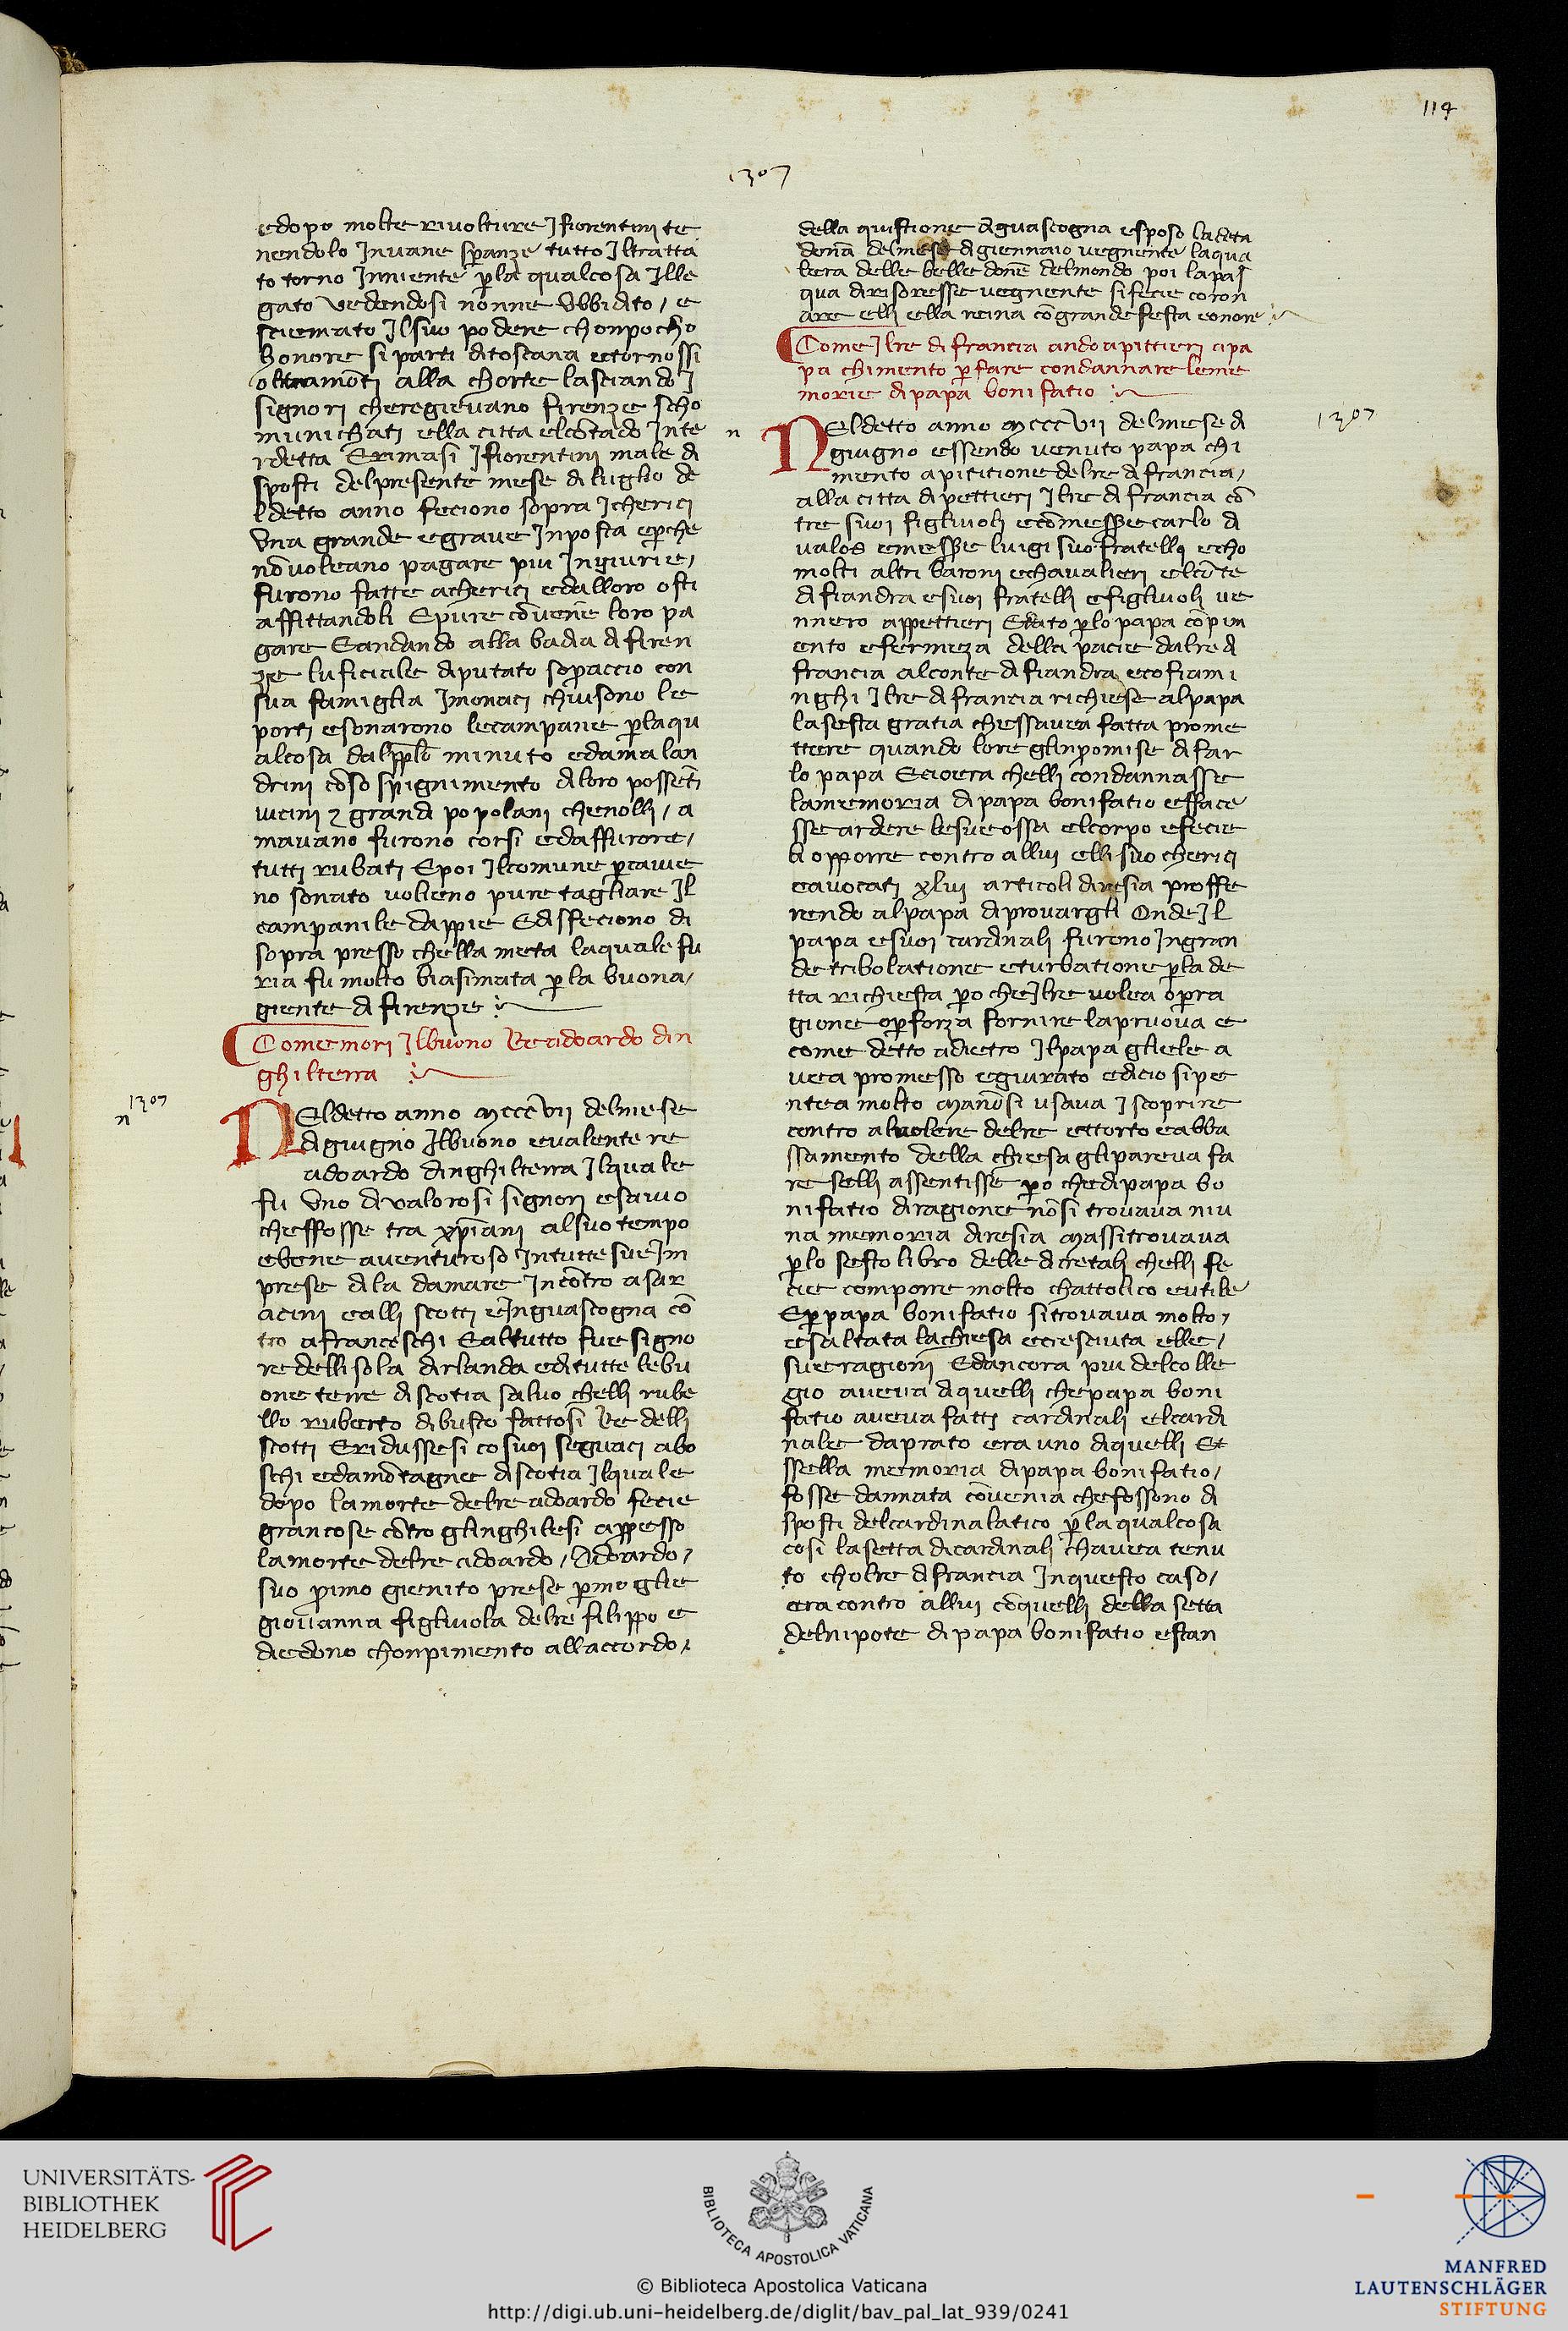 114
1307
edopo molte rivolture J fiorentini te
nendolo Jnvane sperāze tutto Jltratta
to torno Jnniente p̱la qualcosa Jlle
gato vedendosi nonne Vbbidito / e
sciemato Jlsuo podere chonpocho
honore si parti ditoscana ettornossi
oltramōti alla chorte lasciando J
signori cheregievano firenze scho
munichati ella citta elcōtado Jnte
rdetta Erimasi J fiorentini male di
sposti delpresente mese di luglio de
ldetto anno feciono sopra Jcherici
Vna grande egrave Jnposta ep̱che
nōvoleano pagare piu Jngiurie /
furono fatte acherici edalloro osti
affittandoli Epure cōvenē loro pa
gare Eandando alla badia di firen
ze luficiale diputato sopraccio con
sua famiglia Jmonaci chiusono le
porti esonarono lecampane p̱laqu
alcosa dalpp̄lō minuto edamalan
drini cōso spignimento diloro possēti
vicini z grandi popolani chenolli / a
mavano furono corsi edaffurore /
tutti rubati Epoi Jlcomune p̱cavie
no sonato vollono pure tagliare Jl
campanile dappie Edisfeciono di
sopra presso chella meta laquale fu
ria fu molto biasimata p̱la buona /
giente di firenze
Comemori Jlbuono Re adoardo din
ghilterra
1307
n
NEldetto anno MCCCVII delmese
digiugno Jlbuono evalente re
adoardo dinghilterra Jlquale
fu Vno di valorosi signori esavio
cheffosse tra xp̄iani alsuo tempo
ebene aventuroso Jntutte sue Jm
prese dila damare Jncōtro asar
acini ealli scotti eJnguascogna cō
tro afranceschi Ealtutto fue signo
re dellisola dirlanda editutte lebu
one terre discotia salvo chelli rube
llo ruberto dibusto fattosi Re delli
scotti Eridussesi cosuoi seguaci abo
schi edamōtagne discotia Jlquale
dopo lamorte delre adoardo fecie
grancose cōtro glinghilesi appesso
lamorte delre adoardo / Adoardo /
suo primo gienito prese p̱moglie
giovanna figliuola delre filippo e
diedono chonpimento allaccordo /
della quistione diguascogna esposo ladetta
donā delmese digiennaio vegnente laqua
lera delle belle donē delmondo poi lapas
qua dirisoresse vegnente sifecie coron
are elli ella reina cōgrande festa eonore
Come Jlre di francia ando apittieri apa
pa chimento p̱ fare condannare leme
morie di papa bonifatio
n
1307
NEldetto anno MCCCVII delmese di
giugno essendo venuto papa chi
mento apititione delre di francia /
alla citta di pettieri Jlre di francia cō
tre suoi figliuoli ecōmesserecarlo di
valos emessere luigi suo fratello echo
molti altri baroni echavalieri elcōte
di fiandra esuoi fratelli efigliuoli ve
nnero appettieri Edato p̱lo papa cōpim
ento efermeza della pacie dalre di
francia alconte di fiandra ecofiami
nghi Jlre di francia richiese alpapa
lasesta gratia chessavea fatta prome
ttere quando lore glinpromise di far
lo papa Ecioera chelli condannasse
lamemoria di papa bonifatio effacie
sse ardere lesue ossa elcorpo efecie
li opporre contro allui elli suo cherici
eavocati xlvii articoli diresia proffe
rendo alpapa di provargli Onde Jl
papa esuoi cardinali furono Jngran
de tribolatione eturbatione p̱la de
tta richiesta p̱o che Jlre volea op̱ra
gione op̱forza fornire lapruova e
come detto adietro Jlpapa gliele a
vea promesso egiurato edicio sipe
ntea molto Manōsi usava J scoprire
contro alvolere delre ettorto eabba
ssamento della chiesa glipareva fa
re selli assentisse p̱o chedipapa bo
nifatio diragione nōsi trovava niu
na memoria diresia Massitrovava
p̱lo sesto libro delle dicretali chelli fe
cie comporre molto chattolico eutile
Ep̱papa bonifatio sitrovava molto /
esaltata lachiesa ecresciuta elle /
sue ragioni Edancora piu delcolle
gio aveva diquelli chepapa boni
fatio aveva fatti cardinali elcardi
nale daprato era uno diquelli Et
ssella memoria dipapa bonifatio /
fosse dannata cōvenia chefossono di
sposti delcardinalatico p̱la qualcosa
cosi lasetta dicardinali chavea tenu
to cholre di francia Jnquesto caso /
era contro allui cōquelli della setta
delnipote di papa bonifatio estan
UNIVERSITÄTS-
BIBLIOTHEK
HEIDELBERG
BIBLIOTECA APOSTOLICA VATICANA
© Biblioteca Apostolica Vaticana
http://digi.ub.uni-heidelberg.de/diglit/bav_pal_lat_939/0241
MANFRED
LAUTENSCHLÄGER
STIFTUNG